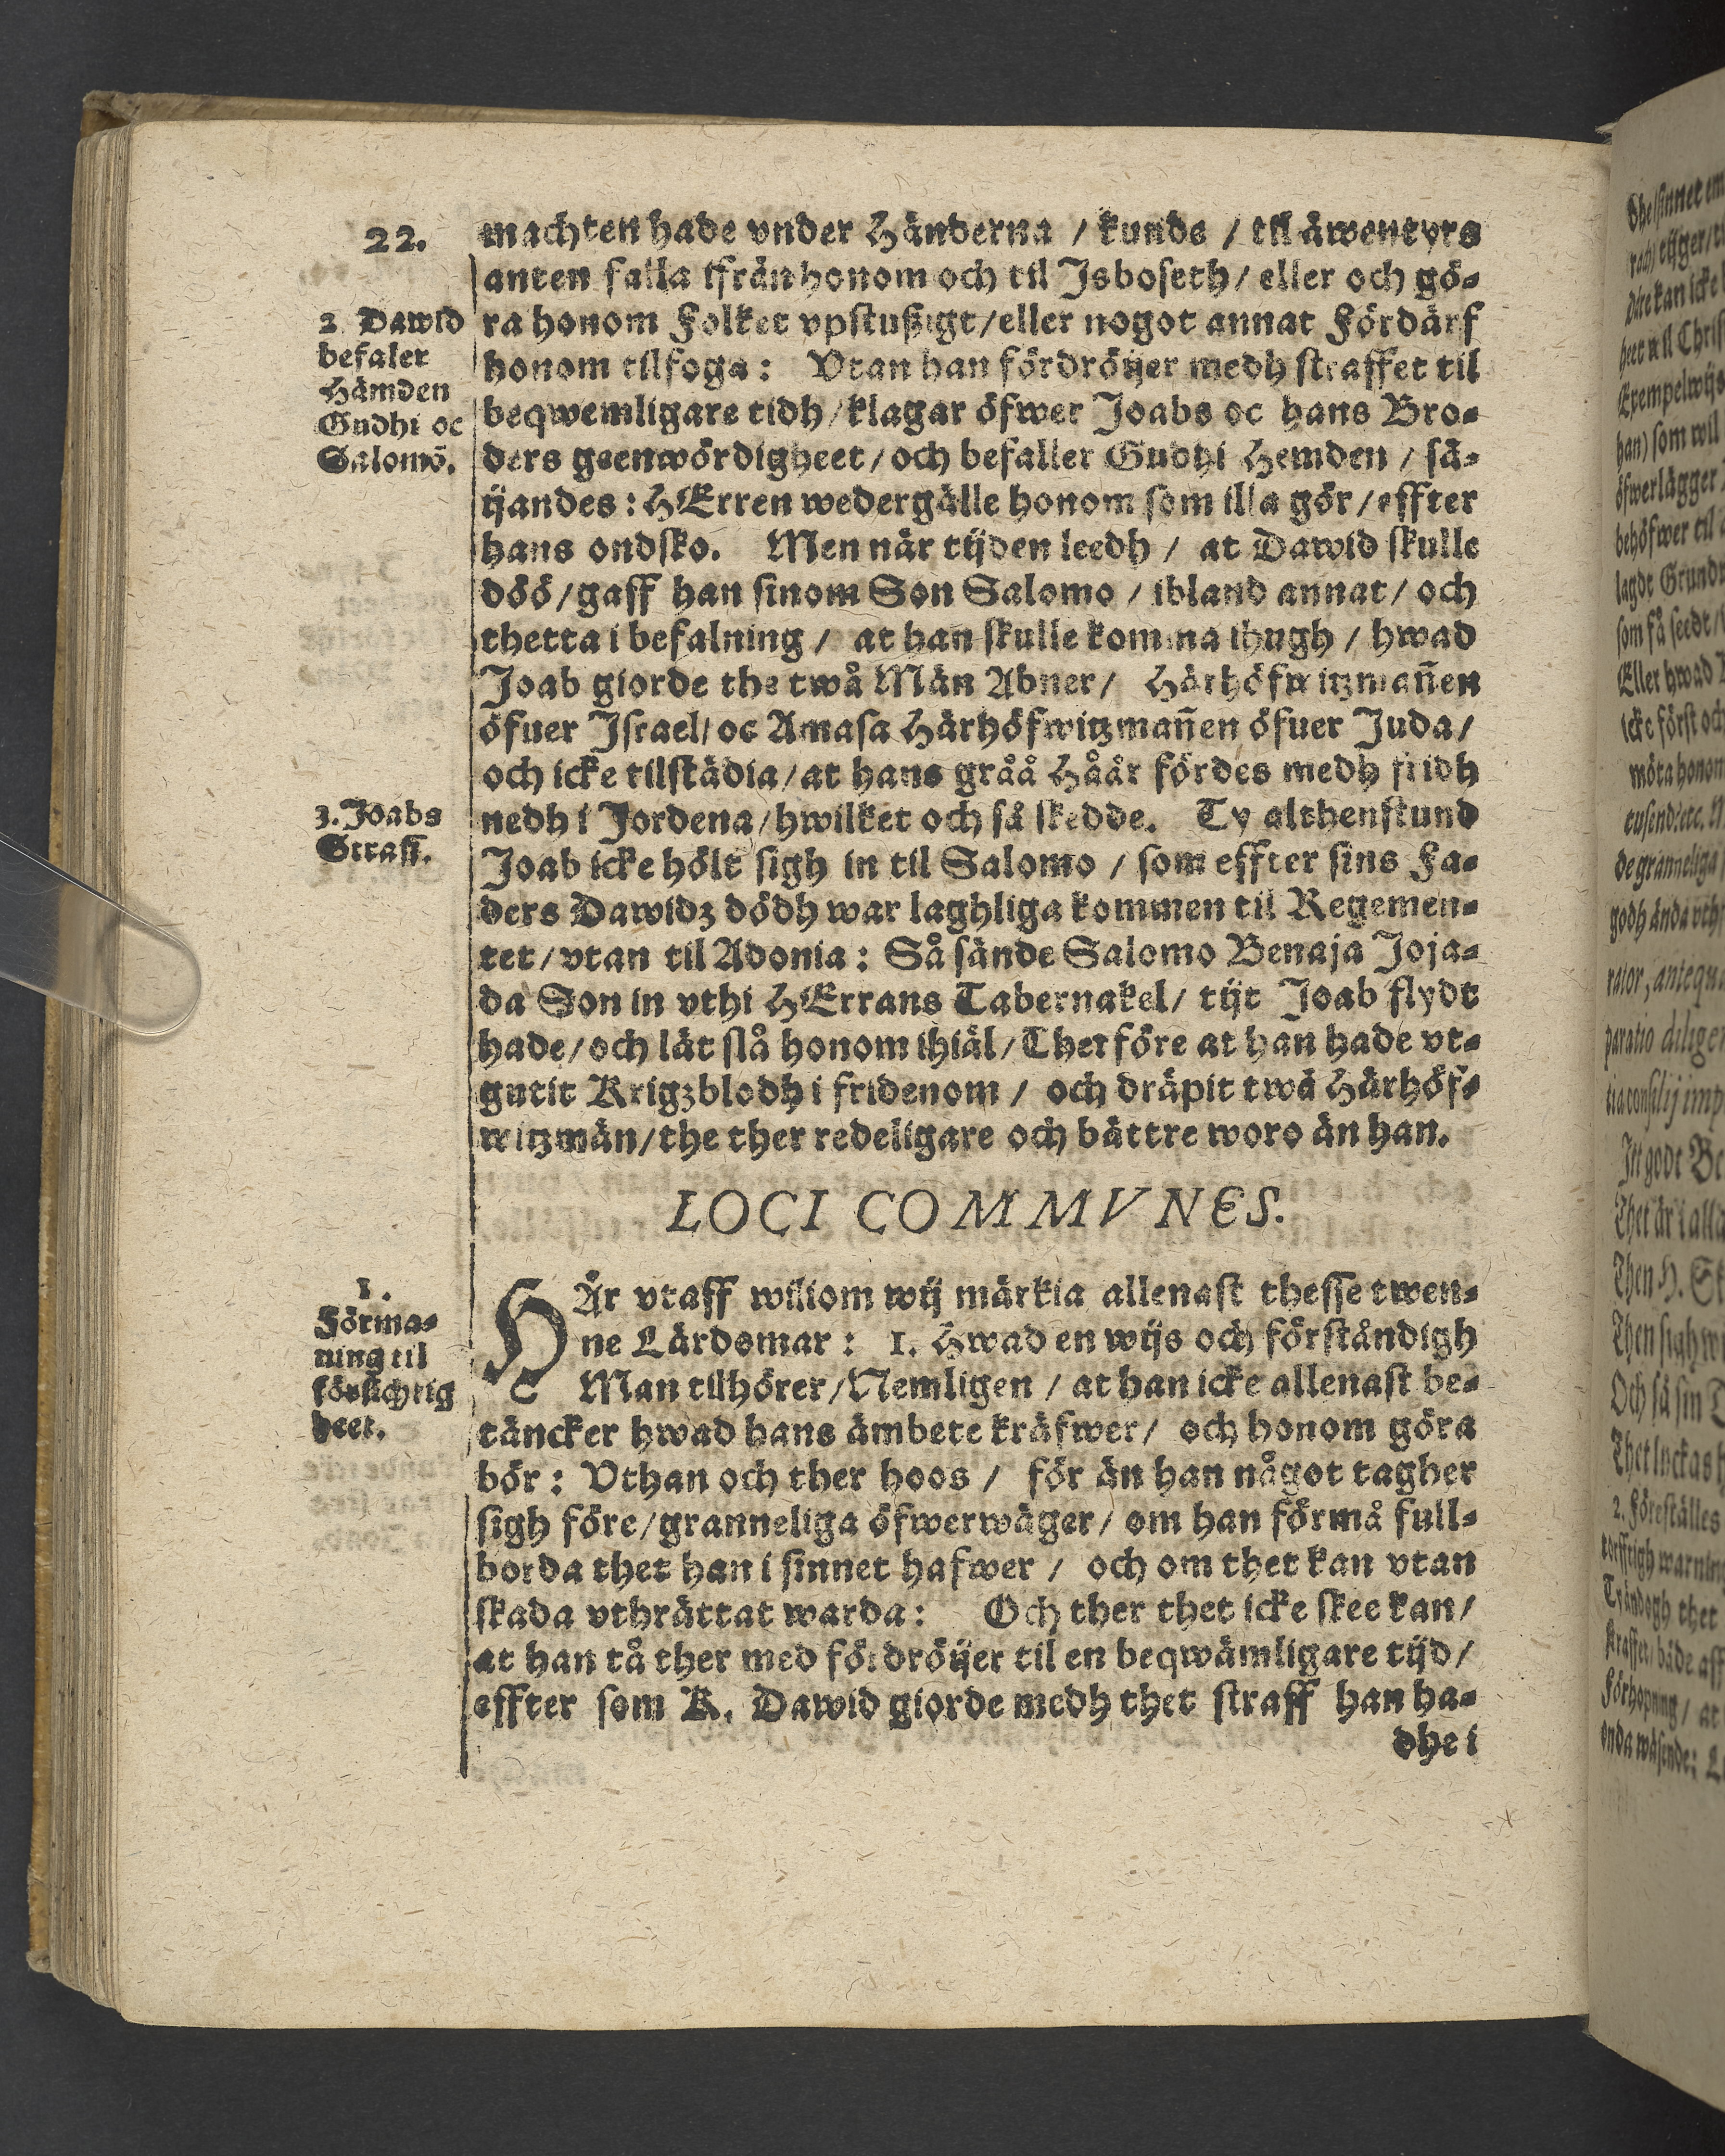 22.
machten hade vnder Händerna / kunde / til äwentyrs
anten falla ifrån honom och til Isboseth / eller och gö-
2 Dawid
befaler
Hämden
Gudhi oc
Salomō.
ra honom Folket vpstußigt / eller nogot annat Fördärf
honom tilfoga: Vtan han fördröijer medh straffet til
beqwemligare tidh / klagar öfwer Joabs oc hans Bro-
ders geenwördigheet / och befaller Gudhi Hemden / sä-
ijandes: HErren wedergälle honom som illa gör / effter
hans ondsko. Men när tijden leedh / at Dawid skulle
döö / gaff han sinom Son Salomo / ibland annat / och
thetta i befalning / at han skulle komma ihugh / hwad
Joab giorde the twå Män Abner / Härhöfwitzmañen
öfuer Israel / oc Amasa Härhöfwitzmañen öfuer Juda /
och icke tilstädia / at hans gråå Håår fördes medh fridh
3. Joabs
Straff.
nedh i Jordena / hwilket och så skedde. Ty althenstund
Joab icke hölt sigh in til Salomo / som effter sins Fa-
ders Dawidz dödh war laghliga kommen til Regemen-
tet / vtan til Adonia: Så sände Salomo Benaja Joja-
da Son in vthi HErrans Tabernakel / tijt Joab flydt
hade / och lät slå honom ihiäl / Therföre at han hade vt-
gutit Krigzblodh i fridenom / och dräpit twå Härhöf-
witzmän / the ther redeligare och bättre woro än han.
LOCI COMMVNES.
1.
Förma-
ning til
försichtig
heet.
HÄr vtaff wiliom wij märkia allenast thesse twen-
ne Lärdomar: 1. Hwad en wijs och förståndigh
Man tilhörer / Nemligen / at han icke allenast be-
täncker hwad hans ämbete kräfwer / och honom göra
bör: Vthan och ther hoos / för än han något tagher
sigh före / granneliga öfwerwäger / om han förmå full-
borda thet han i sinnet hafwer / och om thet kan vtan
skada vthrättat warda: Och ther thet icke skee kan /
at han tå ther med fördröijer til en beqwämligare tijd /
effter som K. Dawid giorde medh thet straff han ha-
dhe i